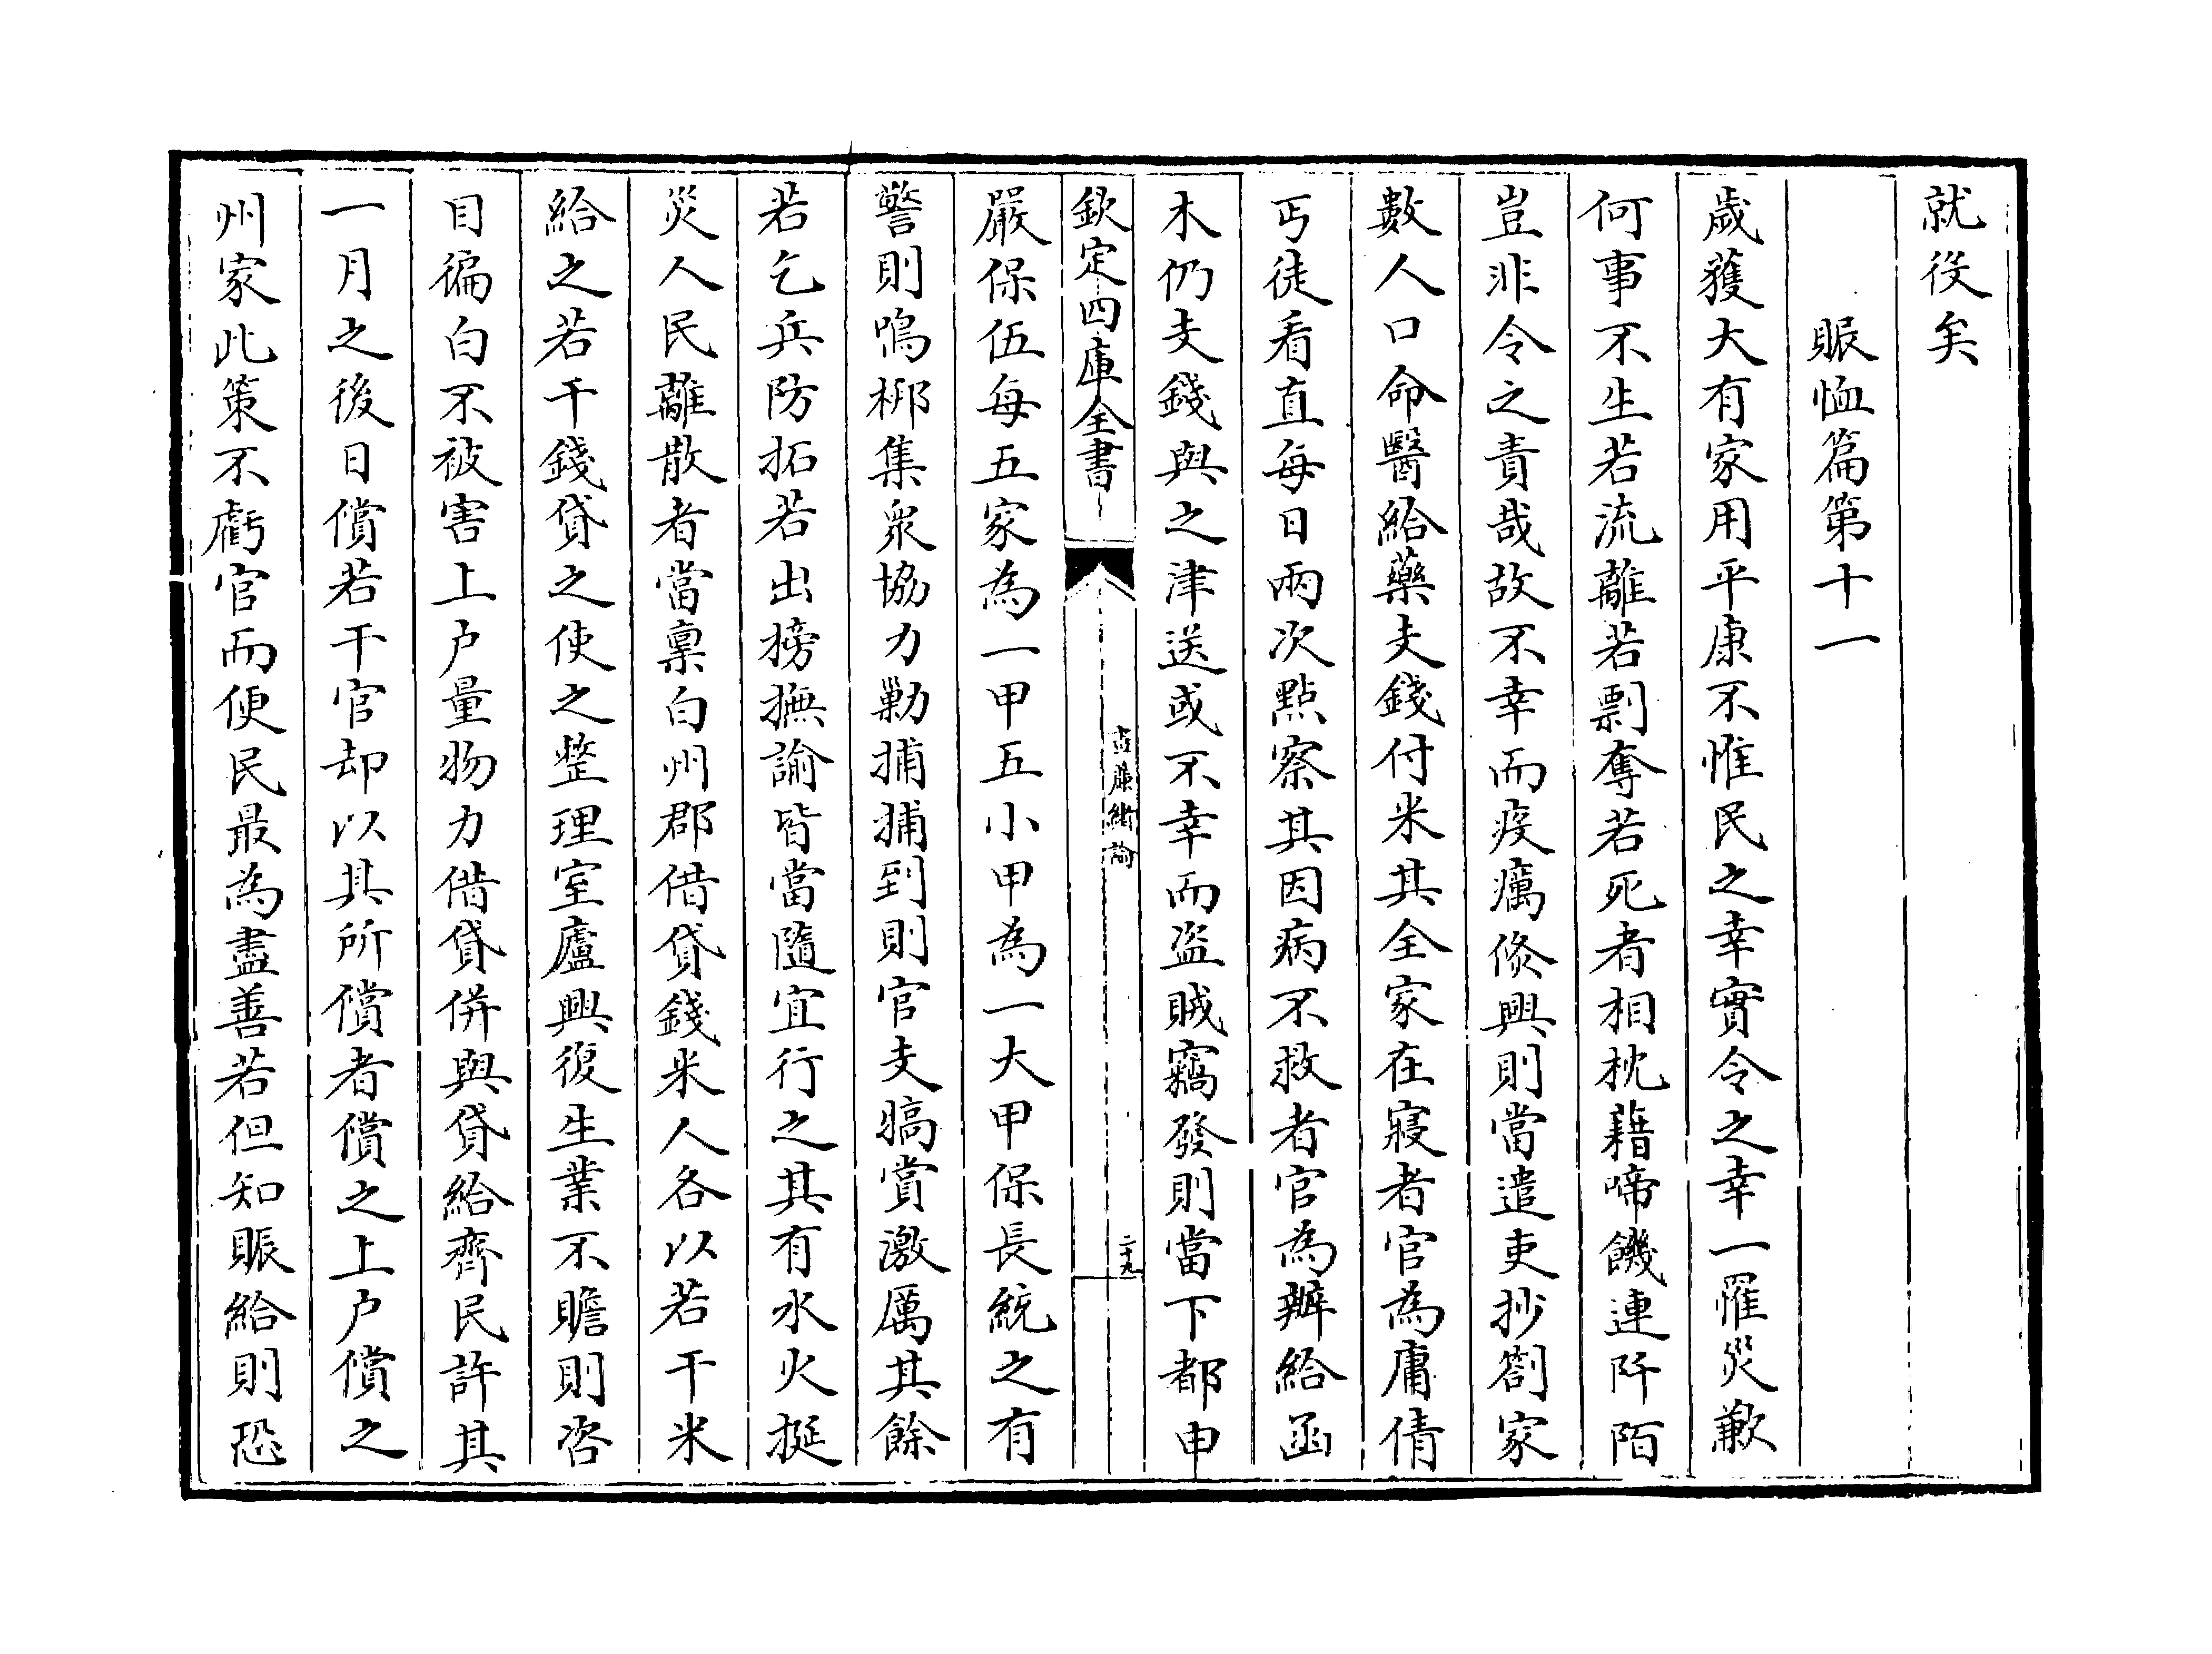 就役矣
賑恤篇第十一
歲獲大有家用平康不惟民之幸實令之幸一罹災歉
何事不生若流離若剽奪若死者相枕藉啼饑連阡陌
豈非令之責哉故不幸而疫癘倐興則當遣吏抄劄家
數人口命醫給藥支錢付米其全家在寢者官為庸倩
丐徒看直每日兩次點察其因病不救者官為辦給函
木仍支錢與之津送或不幸而盜賊竊發則當下都申
欽定四庫全書
晝簾緒論
二十九
嚴保伍每五家為一甲五小甲為一大甲保長統之有
警則鳴梆集衆協力勦捕捕到則官支犒賞激厲其餘
若乞兵防拓若出榜撫諭皆當隨宜行之其有水火挺
災人民離散者當稟白州郡借貸錢米人各以若干米
給之若干錢貸之使之整理室廬興復生業不贍則咨
目徧白不被害上户量物力借貸併與貸給齊民許其
一月之後日償若干官却以其所償者償之上户償之
州家此策不虧官而便民最為盡善若但知賑給則恐